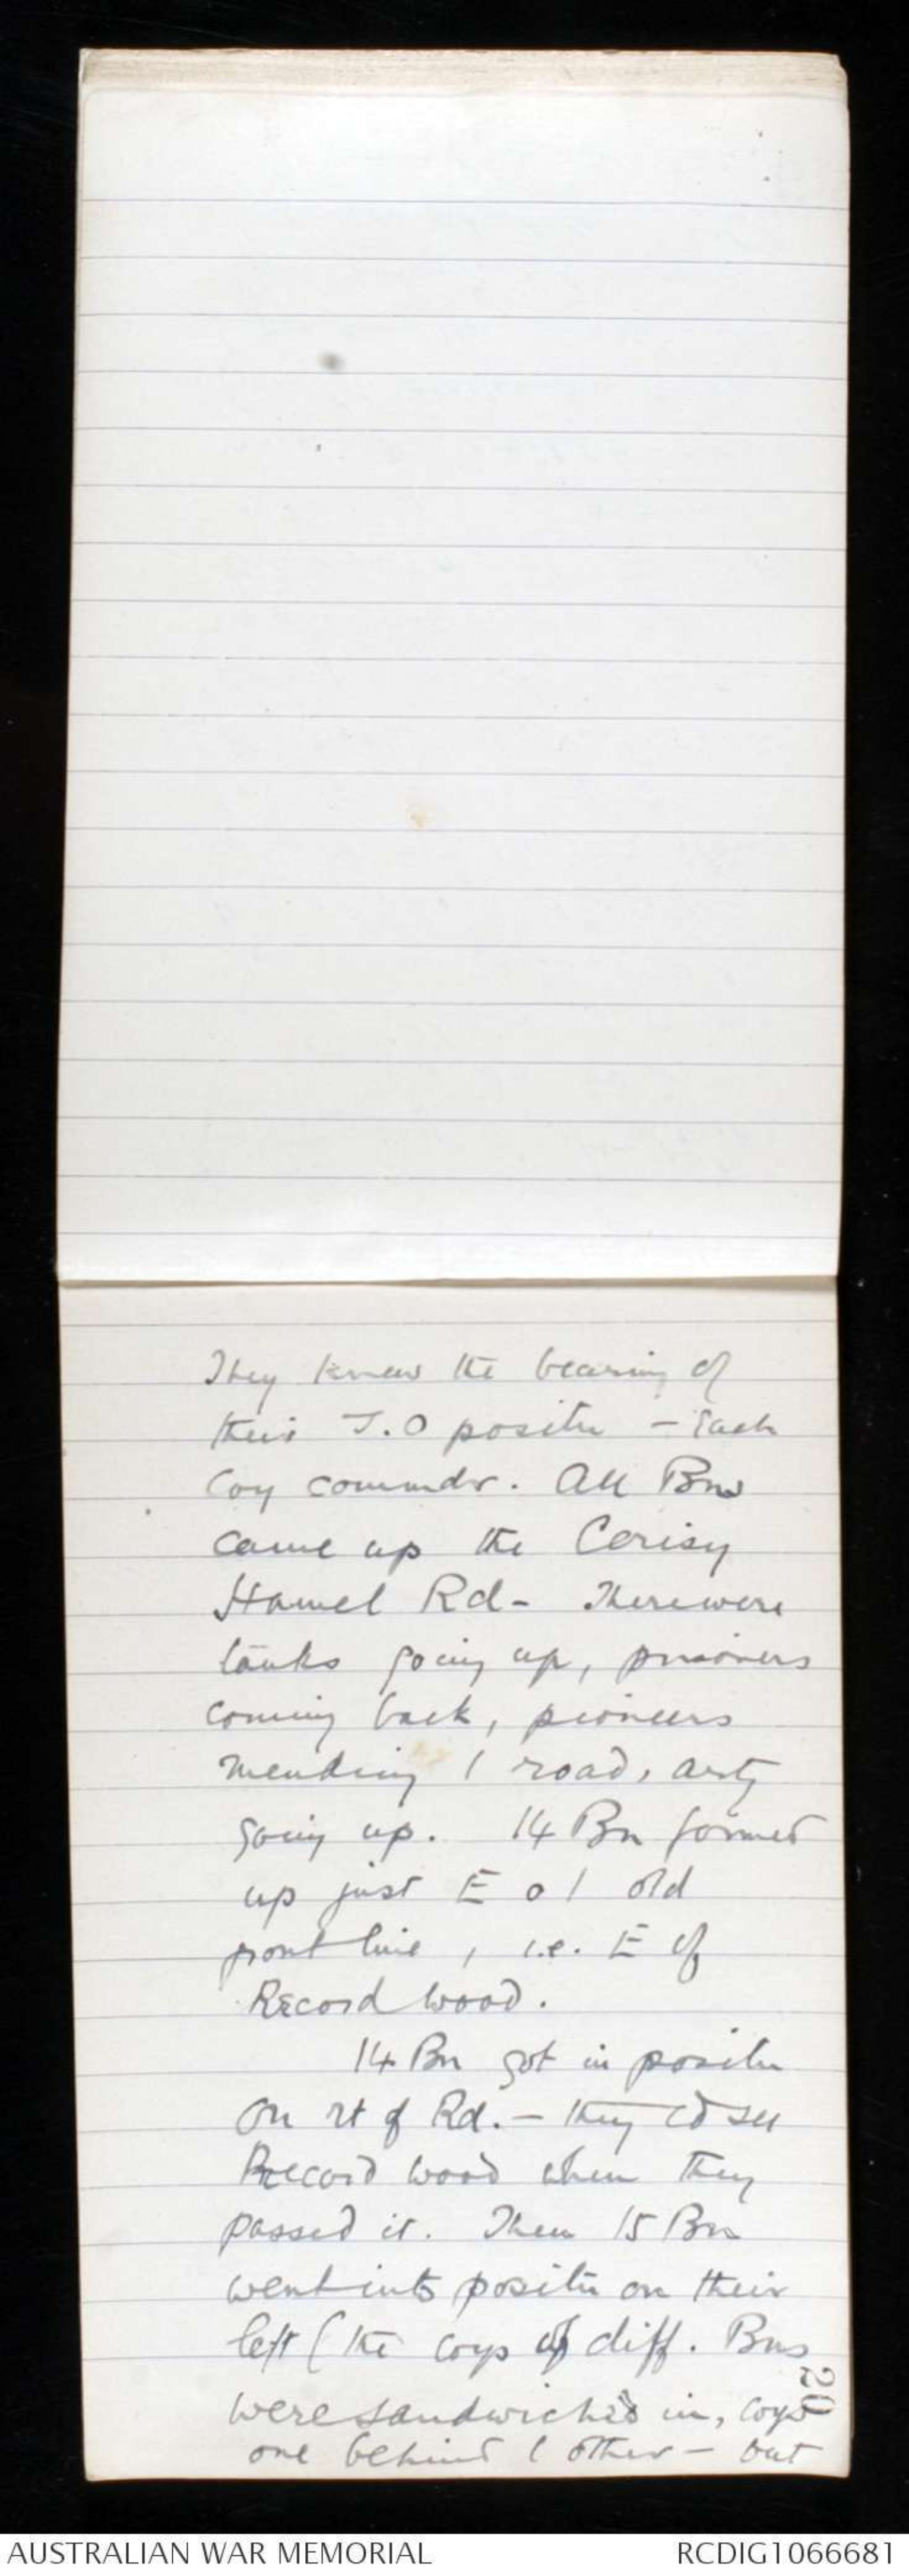 They knew the bearing of
their J.O positn - Each
Coy commdr. All Bns
came up the Cerisy
Hamel Rd - There were
tanks going up, prisoners
coming back, pioneers
mending / road, arty
going up. 14 Bn formed
up just E o / old
front line, i.e. E of
Record Wood.
14 Bn got in positn
on rt of Rd. - they cd see
Record Wood when they
passed it. Then 15 Bn
went into positn on their
left (the coys of diff. Bns
were sandwiched in, coys
one behind / other - but
20
AUSTRALIAN WAR MEMORIAL
RCDIG1066681